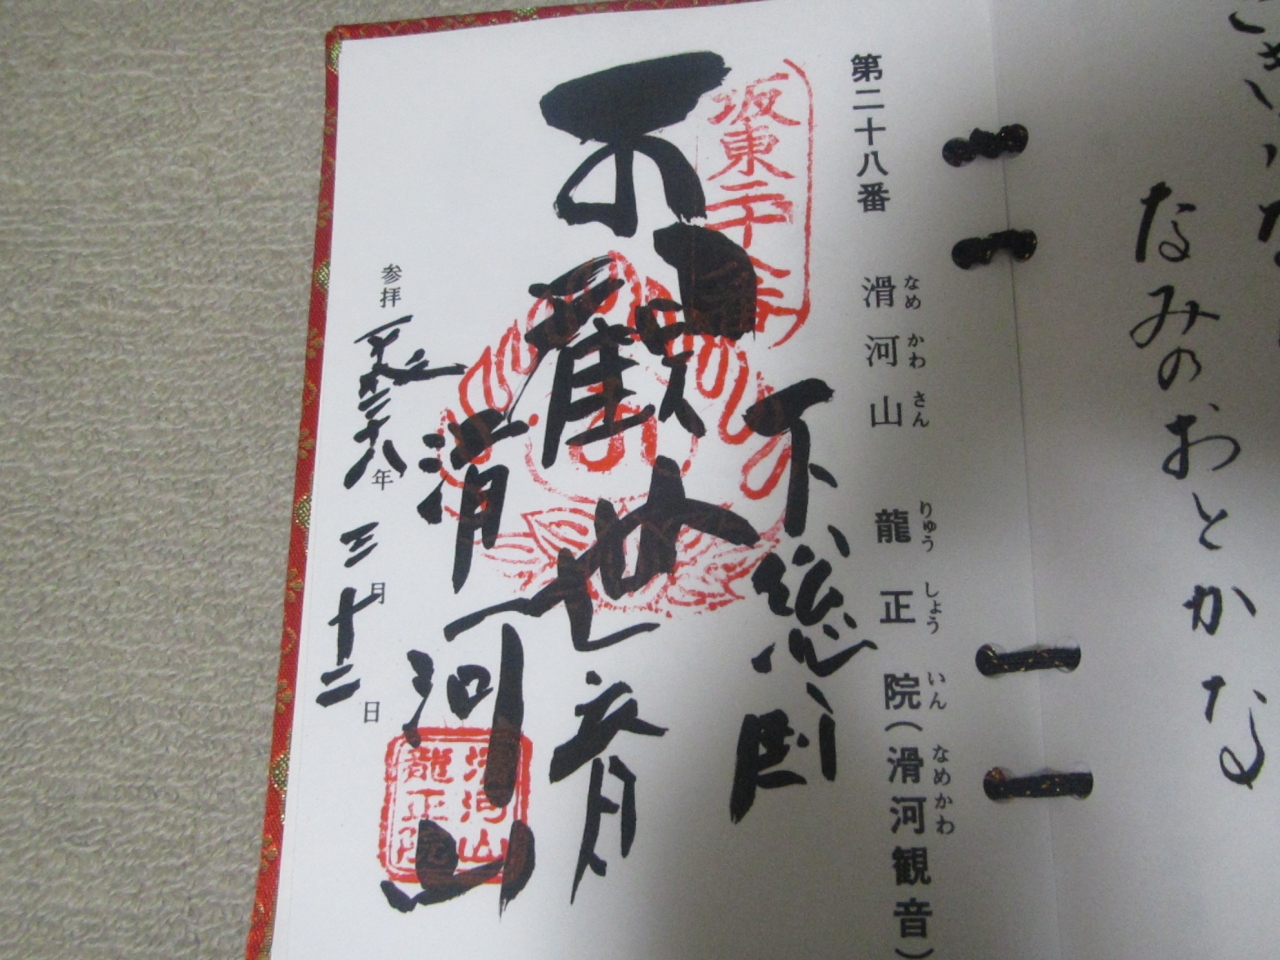 なみのおとかな
第二十八番 滑河山 龍正院(滑河観音)
なめ かわ さん りゅう しょう いん なめかわ
坂東二十八番
下総国
觀世音
滑河山
滑河山
龍正院
参拝 平成二十八年 三月 十二日